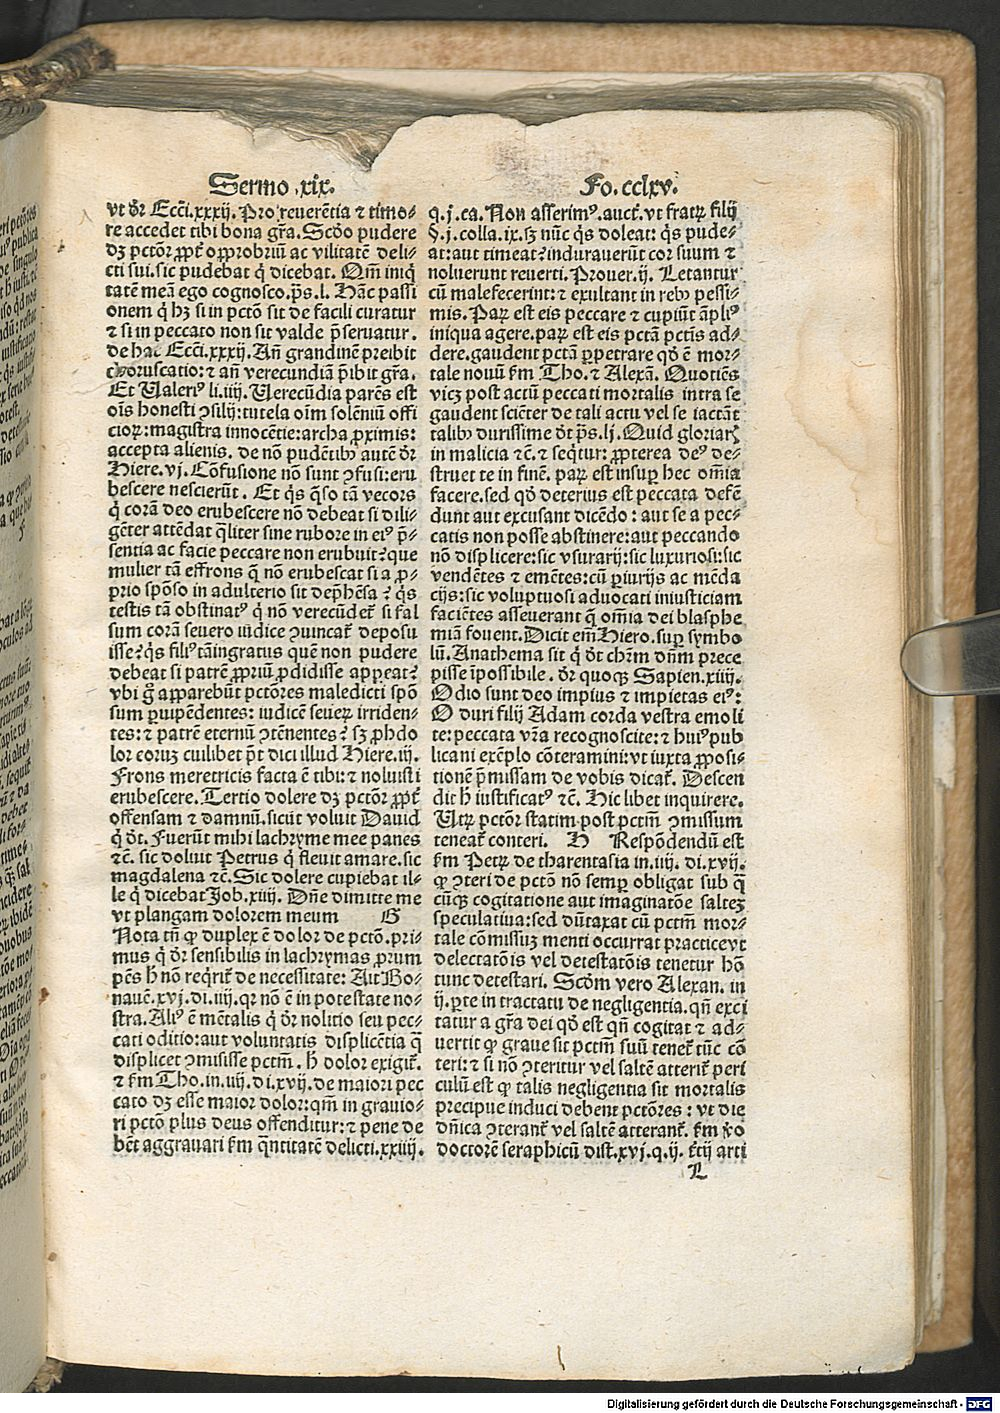 Sermo .xix.
Fo. cclxv.
vt dr̄ Ecci.xxxij. Pro reuerētia ⁊ timo-
re accedet tibi bona gr̄a. Scd̄o pudere
dꝫ pctōr ꝓpt̄ opprobriū ac vilitatē deli-
cti sui. sic pudebat q̇ dicebat. Qm̄ iniq̇
tatē meā ego cognosco. ps̄. l. Hāc passi
onem q̇ hꝫ si in pctō sit de facili curatur
⁊ si in peccato non sit valde p̄seruatur.
de hac Ecci.xxxij. Añ grandinē preibit
choruscatio: ⁊ añ verecundiā p̄ibit gr̄a.
Et Ualeriꝰ li.iiij. Uerecūdia parēs est
oīs honesti ꝯsilij: tutela oīm solēniū offi
cioꝝ: magistra innocētie: archa ꝓximis:
accepta alienis. de nō pudētibꝰ autē dr̄
Hiere.vj. Cōfusione nō sunt ꝯfusi: eru
bescere nescierūt. Et q̇s q̄so tā vecors
q̇ corā deo erubescere nō debeat si dili-
gēter attēdat q̄liter sine rubore in eiꝰ p̄-
sentia ac facie peccare non erubuit? que
mulier tā effrons q̄ nō erubescat si a ꝓ-
prio spōso in adulterio sit dep̄hēsa? q̇s
testis tā obstinatꝰ q̇ nō verecūdet̄ si fal
sum corā seuero iudice ꝯuincat̄ deposu
isse? q̇s filiꝰ tā ingratus quē non pudere
debeat si patrē ꝓpriū ꝑdidisse appeat?
vbi g̊ apparebūt pctōres maledicti spō
sum ꝑuipēdentes: iudicē seueꝝ irriden-
tes: ⁊ patrē eternū ꝯtēnentes? sꝫ ꝓhdo
lor eoruꝫ cuilibet p̄t dici illud Hiere.iij.
Frons meretricis facta ē tibi: ⁊ noluisti
erubescere. Tertio dolere dꝫ pctōr ꝓpt̄
offensam ⁊ damnū. sicut voluit Dauid
q̇ dt̄. Fuerūt mihi lachryme mee panes
⁊c̄. sic doluit Petrus q̇ fleuit amare. sic
magdalena ⁊c̄. Sic dolere cupiebat il-
le q̇ dicebat Job.xiiij. Dn̄e dimitte me
vt plangam dolorem meum G
Nota tn̄ ꝙ duplex ē dolor de pctō. pri-
mus q̇ dr̄ sensibilis in lachrymas ꝓrum
pēs h̄ nō req̇rit̄ de necessitate: Ait Bo-
nauē.xvj.di.iiij. qr nō ē in potestate no-
stra. Aliꝰ ē mētalis q̇ dr̄ nolitio seu pec-
cati oditio: aut voluntatis displicētia q̄
displicet ꝯmisisse pctm̄. h̄ dolor exigit̄.
⁊ ẜm Tho.in.iiij.di.xvij. de maiori pec
cato dꝫ esse maior dolor: qm̄ in grauio-
ri pctō plus deus offenditur: ⁊ pene de
bēt aggrauari ẜm q̄ntitatē delicti.xxiiij.
q.j. ea. Non asserimꝰ. auct̄. vt fratꝝ filij
§.j. colla.ix. sꝫ nūc q̇s doleat: q̇s pude-
at: aut timeat? indurauerūt cor suum ⁊
noluerunt reuerti. Prouer.ij. Letantur
cū malefecerint: ⁊ exultant in rebꝰ pessi-
mis. Paꝝ est eis peccare ⁊ cupiūt āpliꝰ
iniqua agere. paꝝ est eis pctā pctīs ad-
dere. gaudent pctā ꝑpetrare qd̄ ē mor-
tale nouū ẜm Tho. ⁊ Alexā. Quotiēs
vicꝫ post actū peccati mortalis intra se
gaudent sciēter de tali actu vel se iactāt
talibꝰ durissime dt̄ ps̄.lj. Quid gloriaris
in malicia ⁊c̄. ⁊ seq̇tur: ꝓpterea deꝰ de-
struet te in finē. paꝝ est insuꝑ hec om̄ia
facere. sed qd̄ deterius est peccata defē
dunt aut excusant dicēdo: aut se a pec-
catis non posse abstinere: aut peccando
nō displicere: sic vsurarij: sic luxuriosi: sic
vendētes ⁊ emētes: cū ꝑiurijs ac mēda
cijs: sic voluptuosi aduocati iniusticiam
faciētes asseuerant q̄ om̄ia dei blasphe
miā fouent. Dicit em̄ Hiero. suꝑ symbo
lū. Anathema sit q̇ dt̄ chr̄m dn̄m prece
pisse īpossibile. dr̄ quoqꝫ Sapien.xiiij.
Odio sunt deo impius ⁊ impietas eiꝰ:
O duri filij Adam corda vestra emolli
te: peccata vr̄a recognoscite: ⁊ huiꝰ pub
licani exēplo cōteramini: vt iuxta ꝓposi-
tionē p̄missam de vobis dicat̄. Descen
dit h̄ iustificatꝰ ⁊c̄. Hic libet inquirere.
Utꝝ pctōr statim post pctm̄ ꝯmissum
teneat̄ conteri. H Respōdendū est
ẜm Petꝝ de tharentasia in.iiij.di.xvij.
ꝙ ꝯteri de pctō nō semꝑ obligat sub q̄
cūqꝫ cogitatione aut imaginatōe salteꝫ
speculatiua: sed dūtaxat cū pctm̄ mor-
tale cōmissuꝫ menti occurrat practice vt
delectatōis vel detestatōis tenetur hō
tunc detestari. Scd̄m vero Alexan. in
ij. ꝑte in tractatu de negligentia. qn̄ exci
tatur a gr̄a dei qd̄ est qn̄ cogitat ⁊ ad-
uertit ꝙ graue sit pctm̄ suū tenet̄ tūc cō
teri: ⁊ si nō ꝯteritur vel saltē atterit̄ peri
culū est ꝙ talis negligentia sit mortalis
precipue induci debent pctōres: vt die
dn̄ica ꝯterant̄ vel saltē atterant̄. ẜm ꝟo
doctorē seraphicū dist.xvj.q.ij. t̄tij arti
L
Digitalisierung gefördert durch die Deutsche Forschungsgemeinschaft - DFG